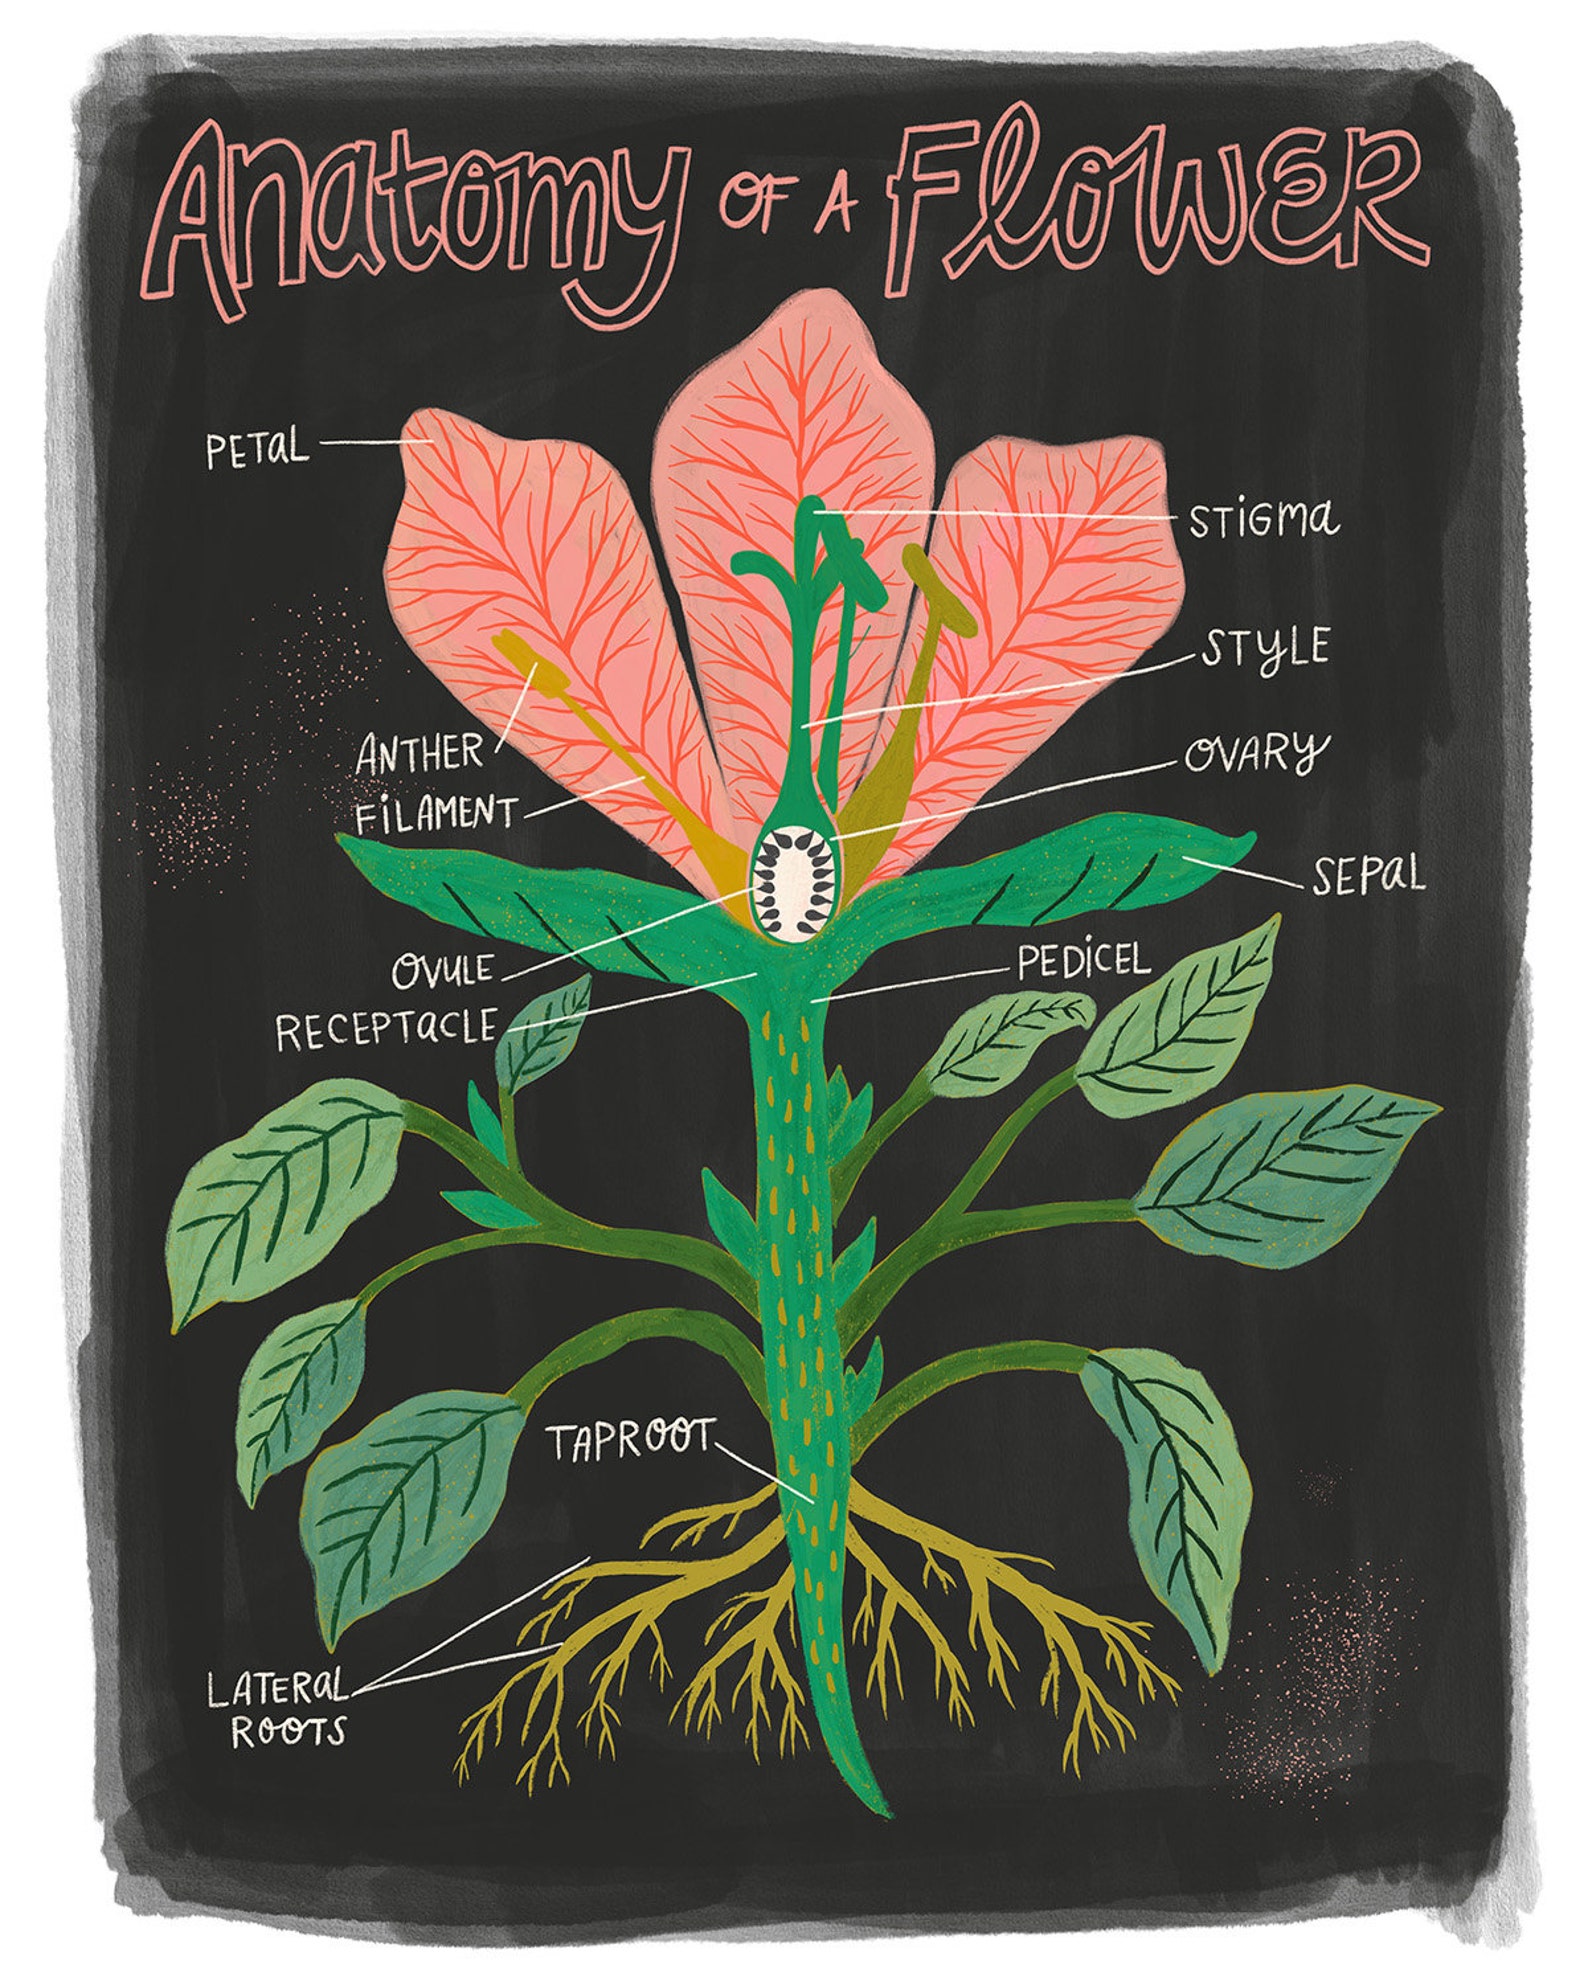 Anatomy OF A Flower
PETAL
STIGMA
STYLE
ANTHER
OVARY
FILAMENT
SEPAL
OVULE
PEDICEL
RECEPTACLE
TAPROOT
LATERAL
ROOTS